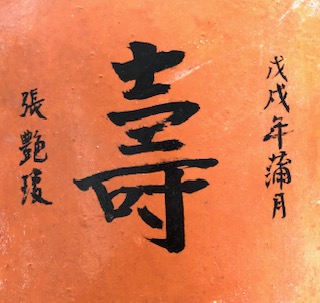 戊戌年蒲月
壽
張艷瓊